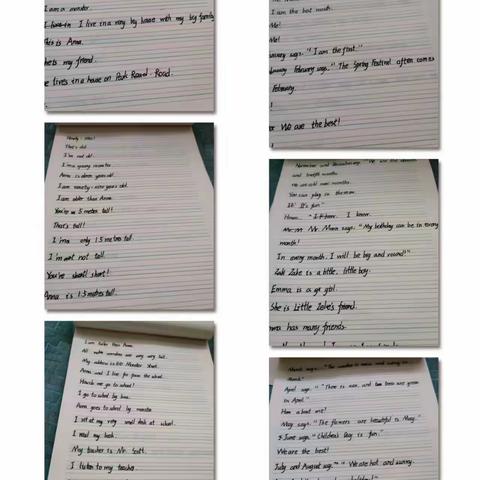 I am a monster
I live in a very big house with my big family
This is Anna.
She is my friend.
She lives in a house on Park Road. Road.
Ninety-nine!
That's old!
I'm not old!
I'm a young monster
Anna is eleven years old.
I am ninety-nine years old.
I am older than Anna.
You're 5 metres tall!
That's tall!
I'm only 1.5 metres tall.
I'm not tall.
You're short!
Anna is 1.5 metres tall.
I am taller than Anna.
All monsters are very very tall.
My address is Monster Street.
Anna and I live far from the school.
How do we go to school?
I go to school by bus.
Anna goes to school by
I sit at my very small desk at school.
I read my book.
My teacher is Mr. Scott.
I listen to my teacher.
I am the best month.
Me!
Me!
January says, "I am the first."
February says, "The Spring Festival often comes
February.
We are the best!
November and December say, "We are the eleventh
and twelfth months.
We are cold months.
You can play in the snow.
It's fun."
Hmm... I know.
Mr. Moon says, "My birthday can be in every
month!
In every month, I will be big and round!"
Zabe is a little, little boy.
Emma is a girl.
She is Little Zabe's friend.
Emma has many friends.
March says,
March."
April says, "There is rain, and trees are green
in April."
How about me?
May says, "The flowers are beautiful in May."
June says, "Children's Day is fun."
We are the best!
July and August say, "We are hot and sunny.